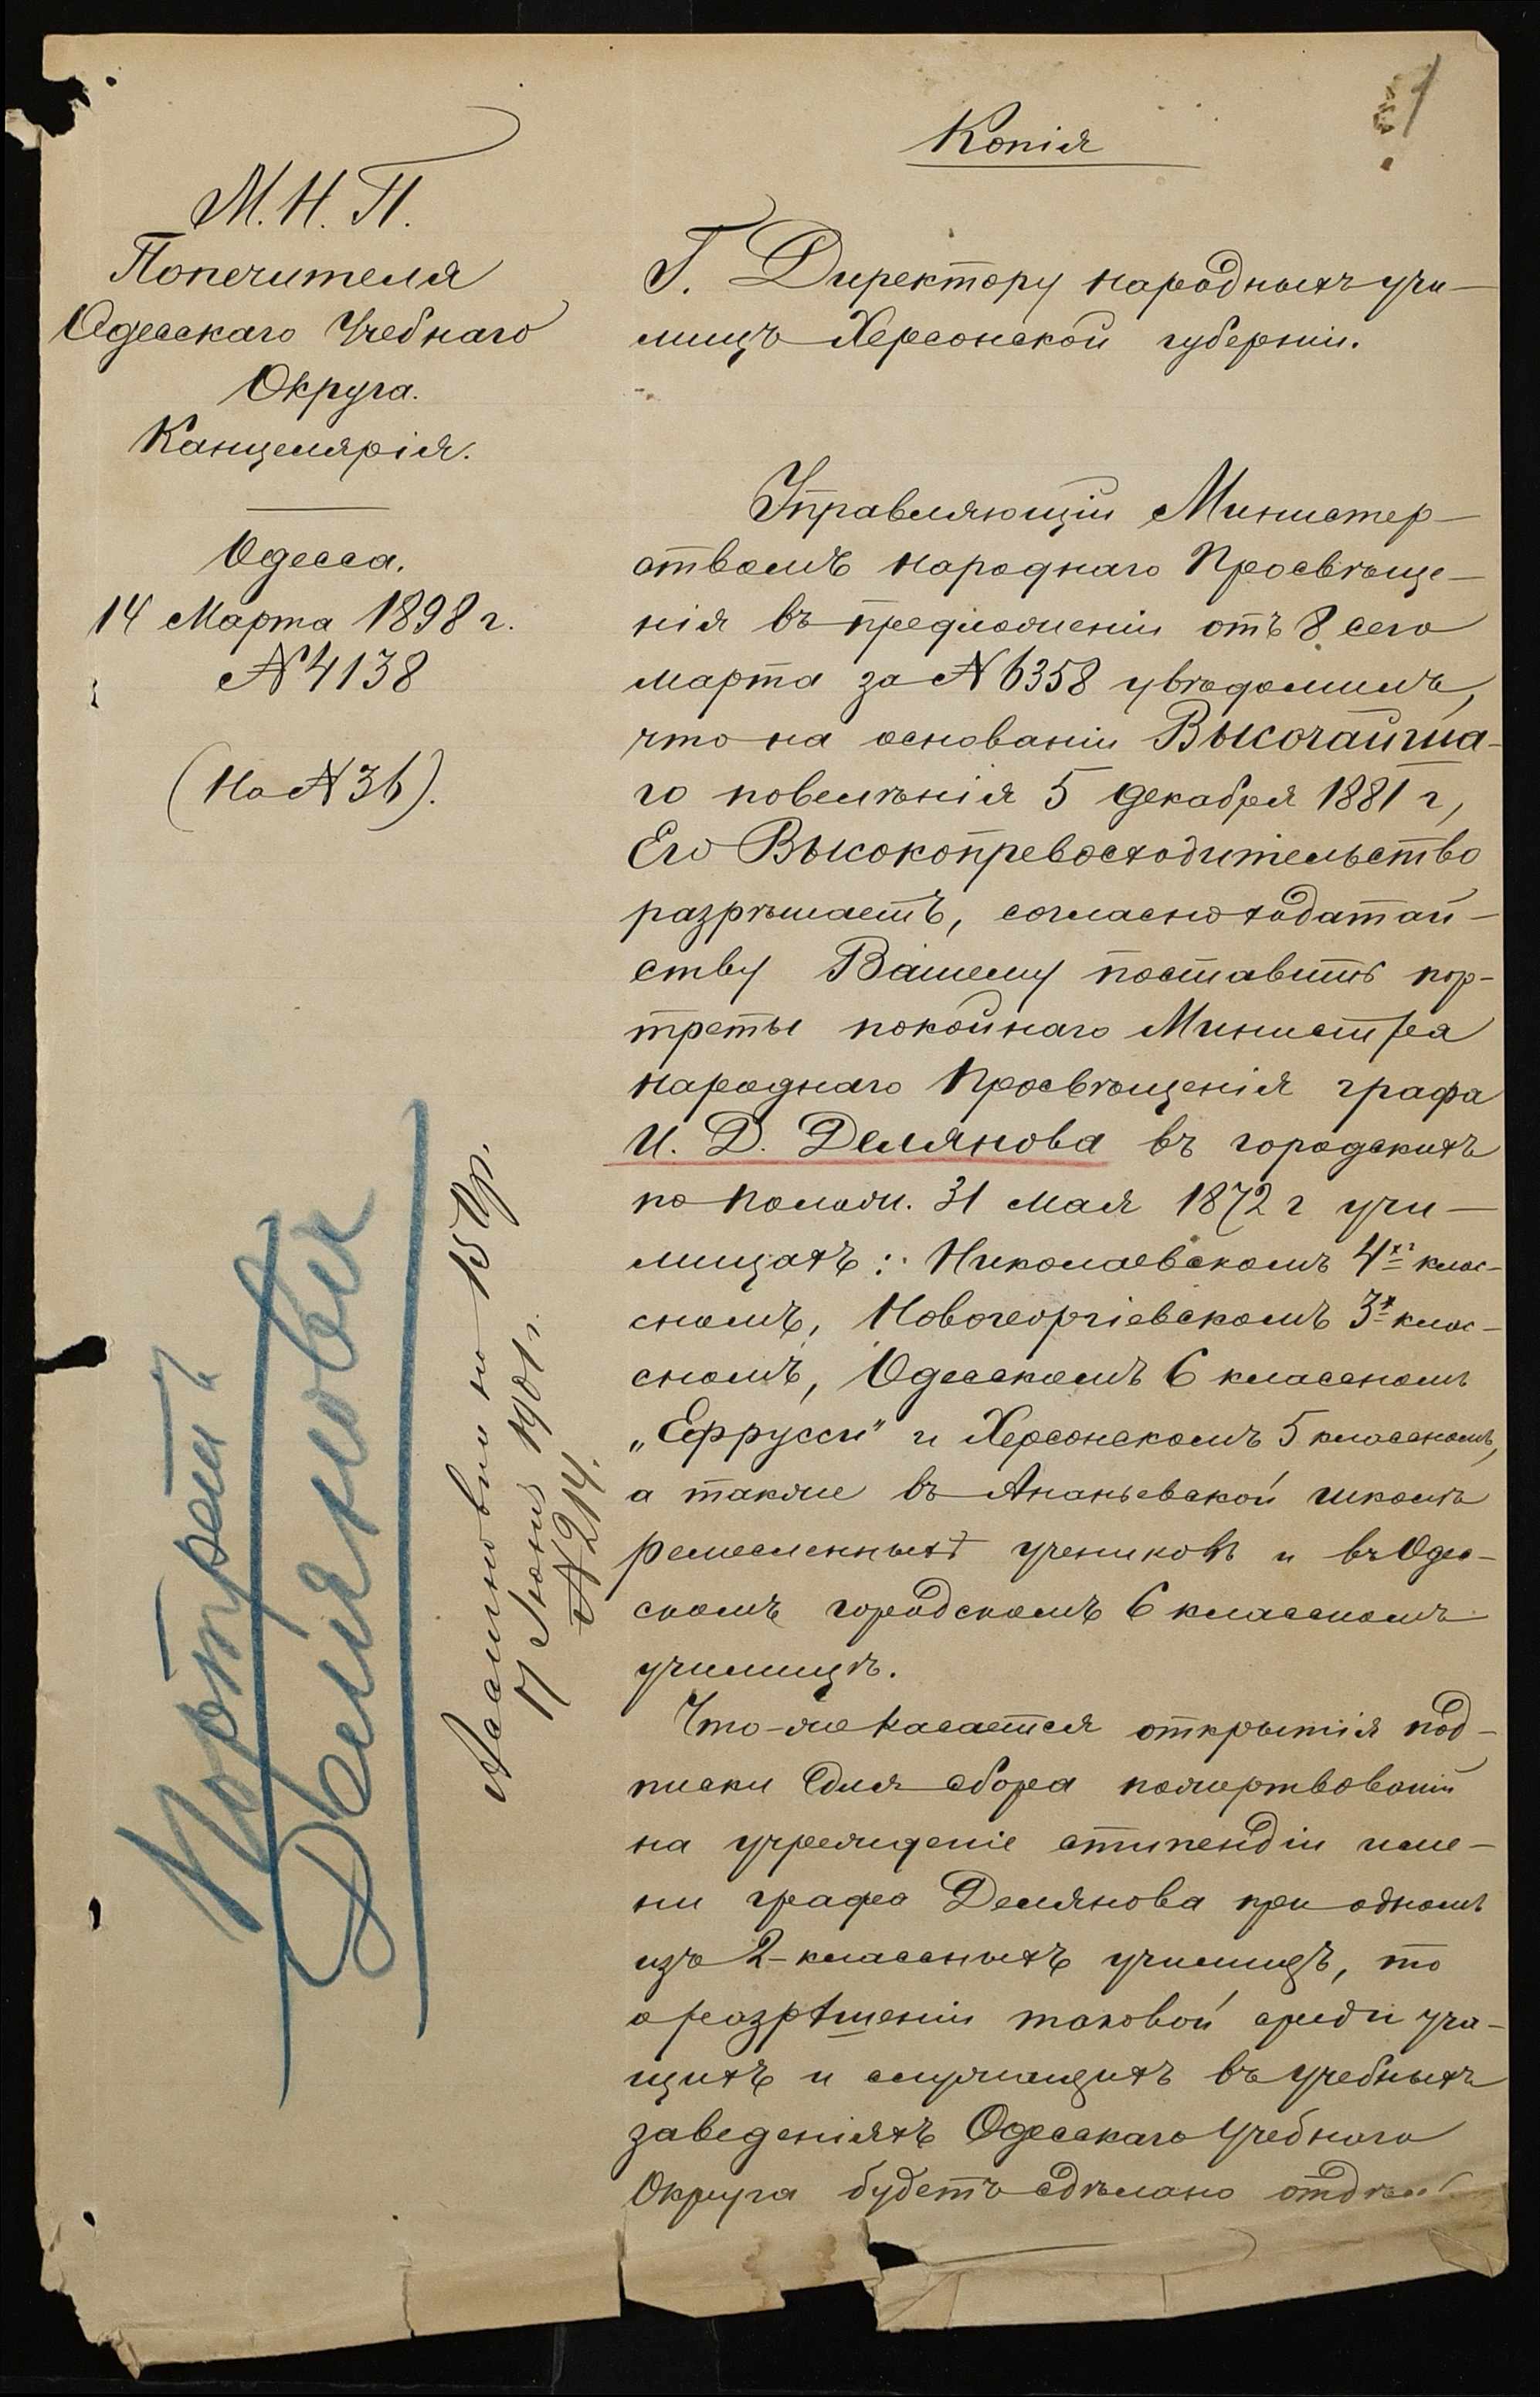 1
Копія
М. Н. П.
Попечителя
Одесскаго Учебнаго
Округа.
Канцелярія.
Одесса.
14 Марта 1898 г.
№ 4138
(На № 36).
Г. Директору народныхъ учи-
лищъ Херсонской губерніи.
Управляющій Министер-
ствомъ Народнаго Просвѣще-
нія въ предложеніи отъ 8 сего
марта за № 6358 увѣдомилъ,
что на основаніи Высочайша-
го повелѣнія 5 декабря 1881 г,
Его Высокопревосходительство
разрѣшаетъ, согласно ходатай-
ству Вашему поставить пор-
треты покойнаго Министра
Народнаго Просвѣщенія графа
И. Д. Делянова въ городскихъ
по Полож. 31 мая 1872 г учи-
лищахъ: Николаевскомъ 4х клас-
сномъ, Новогеоргіевскомъ 3х клас-
сномъ, Одесскомъ 6 классномъ
„Ефрусси" и Херсонскомъ 5 классномъ,
а также въ Ананьевской школѣ
ремесленныхъ учениковъ и въ Одес-
скомъ городскомъ 6 классномъ
училищѣ.
Что-же касается открытія под-
писки для сбора пожертвованій
на учрежденіе стипендіи име-
ни графа Делянова при одномъ
изъ 2-классныхъ училищъ, то
о разрѣшеніи таковой среди уча-
щихъ и служащихъ въ учебныхъ
заведеніяхъ Одесскаго Учебнаго
Округа будетъ сдѣлано
15 Ар.
17 Іюня 1901 г.
№ 214.
Портретъ
Делянова